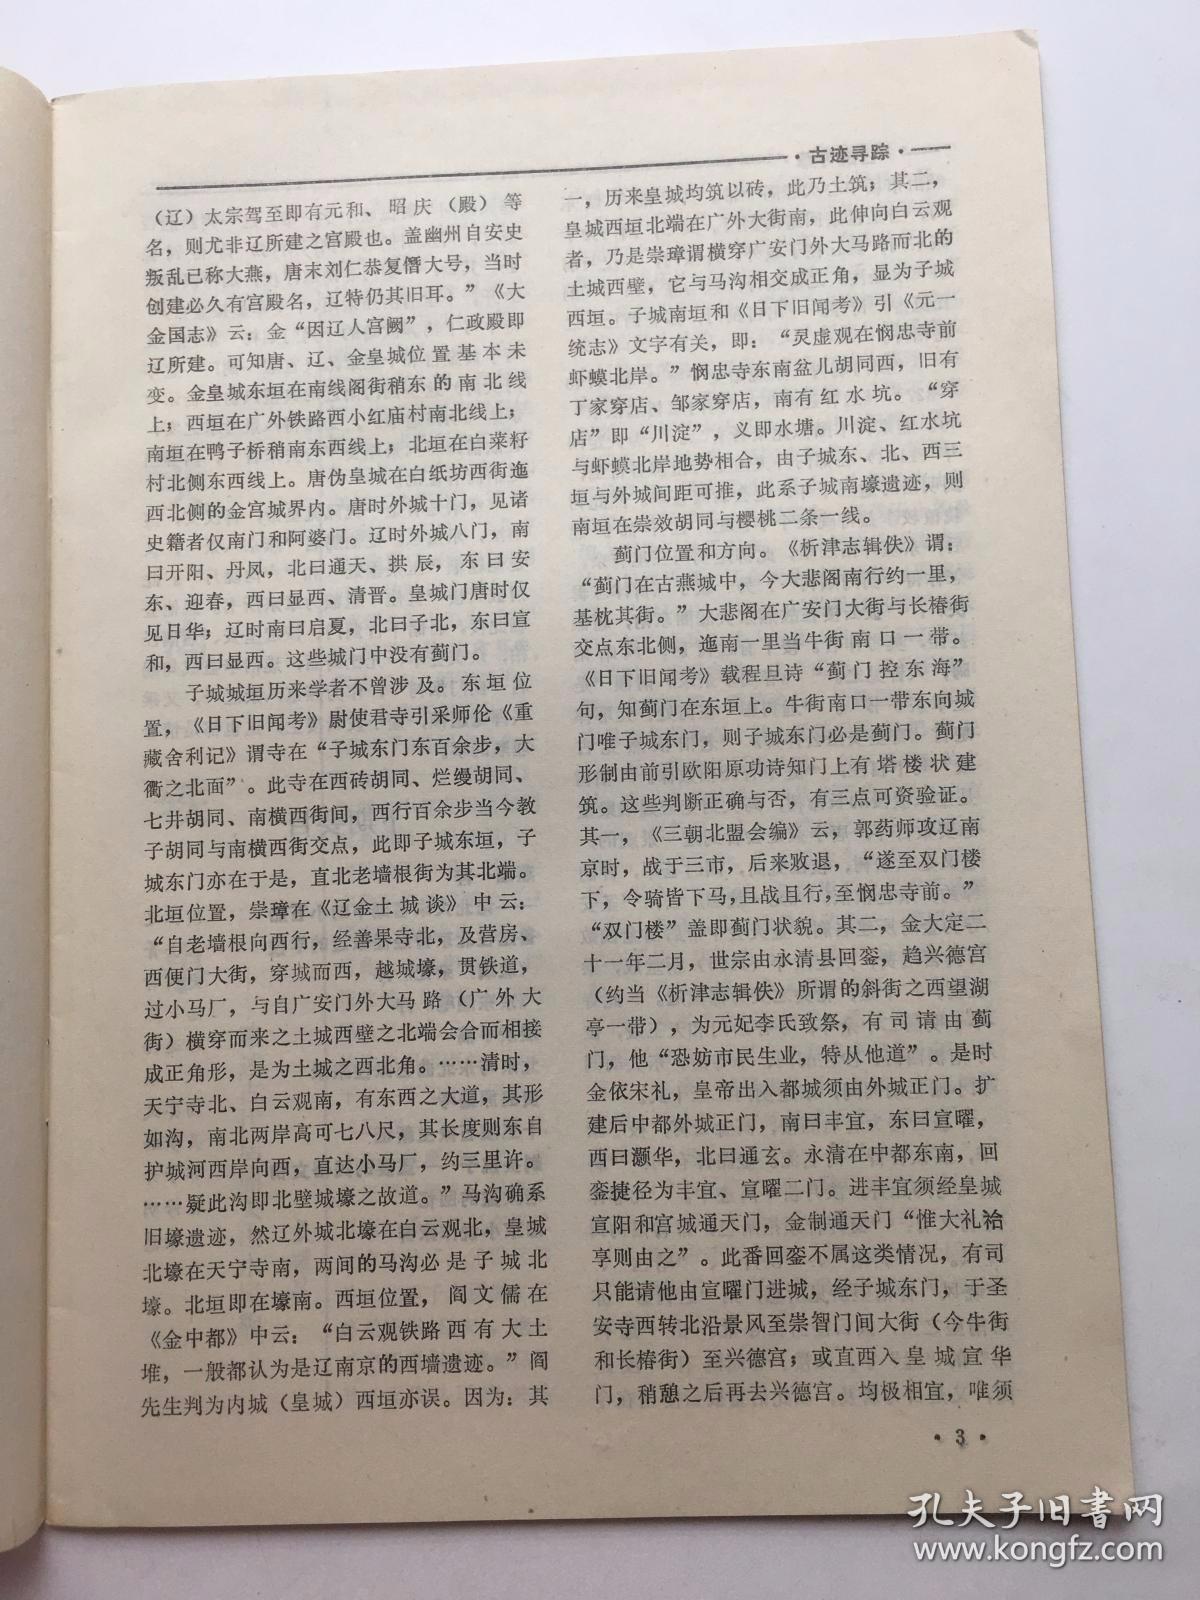 ·古迹寻踪·
（辽）太宗驾至即有元和、昭庆（殿）等
名，则尤非辽所建之宫殿也。盖幽州自安史
叛乱已称大燕，唐末刘仁恭复僭大号，当时
创建必久有宫殿名，辽特仍其旧耳。”《大
金国志》云：金“因辽人宫阙”，仁政殿即
辽所建。可知唐、辽、金皇城位置基本未
变。金皇城东垣在南线阁街稍东的南北线
上；西垣在广外铁路西小红庙村南北线上；
南垣在鸭子桥稍南东西线上；北垣在白菜籽
村北侧东西线上。唐伪皇城在白纸坊西街迤
西北侧的金宫城界内。唐时外城十门，见诸
史籍者仅南门和阿婆门。辽时外城八门，南
曰开阳、丹凤，北曰通天、拱辰，东曰安
东、迎春，西曰显西、清晋。皇城门唐时仅
见日华；辽时南曰启夏，北曰子北，东曰宣
和，西曰显西。这些城门中没有蓟门。
子城城垣历来学者不曾涉及。东垣位
置，《日下旧闻考》尉使君寺引采师伦《重
藏舍利记》谓寺在“子城东门东百余步，大
衢之北面”。此寺在西砖胡同、烂缦胡同、
七井胡同、南横西街间，西行百余步当今教
子胡同与南横西街交点，此即子城东垣，子
城东门亦在于是，直北老墙根街为其北端。
北垣位置，崇璋在《辽金土城谈》中云：
“自老墙根向西行，经善果寺北，及营房、
西便门大街，穿城而西，越城壕，贯铁道，
过小马厂，与自广安门外大马路（广外大
街）横穿而来之土城西壁之北端会合而相接
成正角形，是为土城之西北角。……清时，
天宁寺北、白云观南，有东西之大道，其形
如沟，南北两岸高可七八尺，其长度则东自
护城河西岸向西，直达小马厂，约三里许。
……疑此沟即北壁城壕之故道。”马沟确系
旧壕遗迹，然辽外城北壕在白云观北，皇城
北壕在天宁寺南，两间的马沟必是子城北
壕。北垣即在壕南。西垣位置，阎文儒在
《金中都》中云：“白云观铁路西有大土
堆，一般都认为是辽南京的西墙遗迹。”阎
先生判为内城（皇城）西垣亦误。因为：其
一，历来皇城均筑以砖，此乃土筑；其二，
皇城西垣北端在广外大街南，此伸向白云观
者，乃是崇璋谓横穿广安门外大马路而北的
土城西壁，它与马沟相交成正角，显为子城
西垣。子城南垣和《日下旧闻考》引《元一
统志》文字有关，即：“灵虚观在悯忠寺前
虾蟆北岸。”悯忠寺东南盆儿胡同西，旧有
丁家穿店、邹家穿店，南有红水坑。“穿
店”即“川淀”，义即水塘。川淀、红水坑
与虾蟆北岸地势相合，由子城东、北、西三
垣与外城间距可推，此系子城南壕遗迹，则
南垣在崇效胡同与樱桃二条一线。
蓟门位置和方向。《析津志辑佚》谓：
“蓟门在古燕城中，今大悲阁南行约一里，
基枕其街。”大悲阁在广安门大街与长椿街
交点东北侧，迤南一里当牛街南口一带。
《日下旧闻考》载程旦诗“蓟门控东海”
句，知蓟门在东垣上。牛街南口一带东向城
门唯子城东门，则子城东门必是蓟门。蓟门
形制由前引欧阳原功诗知门上有塔楼状建
筑。这些判断正确与否，有三点可资验证。
其一，《三朝北盟会编》云，郭药师攻辽南
京时，战于三市，后来败退，“遂至双门楼
下，令骑皆下马，且战且行，至悯忠寺前。”
“双门楼”盖即蓟门状貌。其二，金大定二
十一年二月，世宗由永清县回銮，趋兴德宫
（约当《析津志辑佚》所谓的斜街之西望湖
亭一带），为元妃李氏致祭，有司请由蓟
门，他“恐妨市民生业，特从他道”。是时
金依宋礼，皇帝出入都城须由外城正门。扩
建后中都外城正门，南曰丰宜，东曰宣曜，
西曰灏华，北曰通玄。永清在中都东南，回
銮捷径为丰宜、宣曜二门。进丰宜须经皇城
宣阳和宫城通天门，金制通天门“惟大礼祫
享则由之”。此番回銮不属这类情况，有司
只能请他由宣曜门进城，经子城东门，于圣
安寺西转北沿景风至崇智门间大街（今牛街
和长椿街）至兴德宫；或直西入皇城宣华
门，稍憩之后再去兴德宫。均极相宜，唯须
·3·
孔夫子旧书网
www.kongfz.com